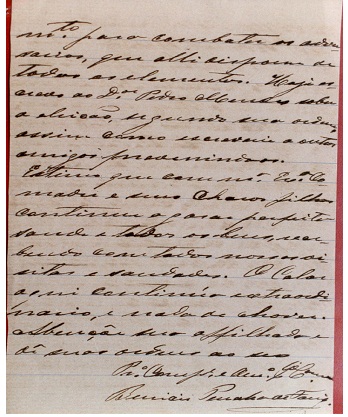 m.to para combater os adver
sarios, que alli dispoem de
todos os elementos. Hoje es
crevo ao Dr. Pedro sobre
a eleição, segundo sua ordem,
assim como escrevi a outros
amigos
Estimo que com
madre e seus charos filhos
continuem a gosar perfeita
saude e todos os seus, rece
bendo com todos nossas vi
sitas e saudades. O Calor
aqui continúa extraordi
nario, e nada de chover.
a benção seu affilhado e
dê suas ordens ao seu
Comp.e e Am.o